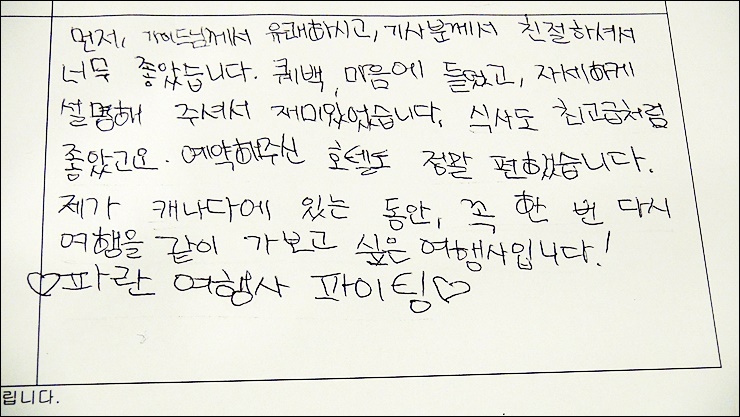 먼저, 가이드님께서 유쾌하시고, 기사분께서 친절하셔서
너무 좋았습니다. 퀘백, 마음에 들었고, 자세하게
설명해 주셔서 재미있었습니다. 식사도 최고급처럼
좋았고요. 예약해주신 호텔도 정말 편했습니다.
제가 캐나다에 있는 동안, 꼭 한 번 다시
여행을 같이 가보고 싶은 여행사입니다!
♡파란 여행사 파이팅♡
립니다.